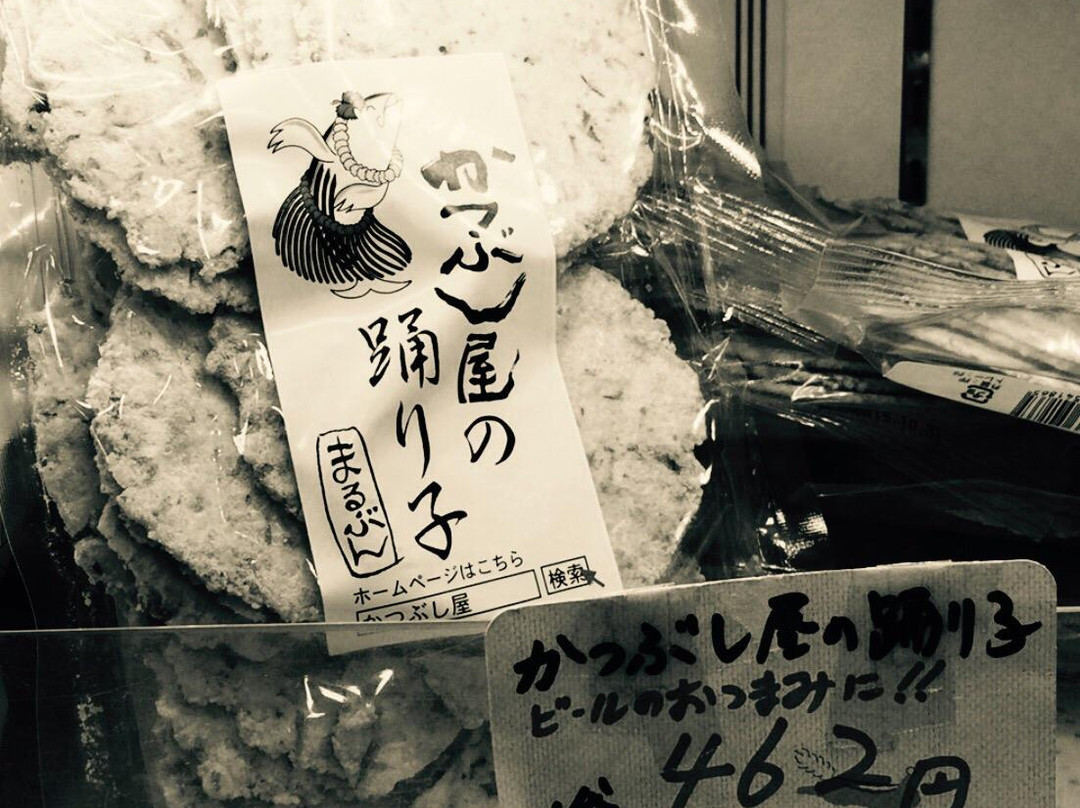 かつぶし屋の
踊り子
まるぶん
ホームページはこちら
かつぶし屋
検索
かつぶし屋の踊り子
ビールのおつまみに!!
462円